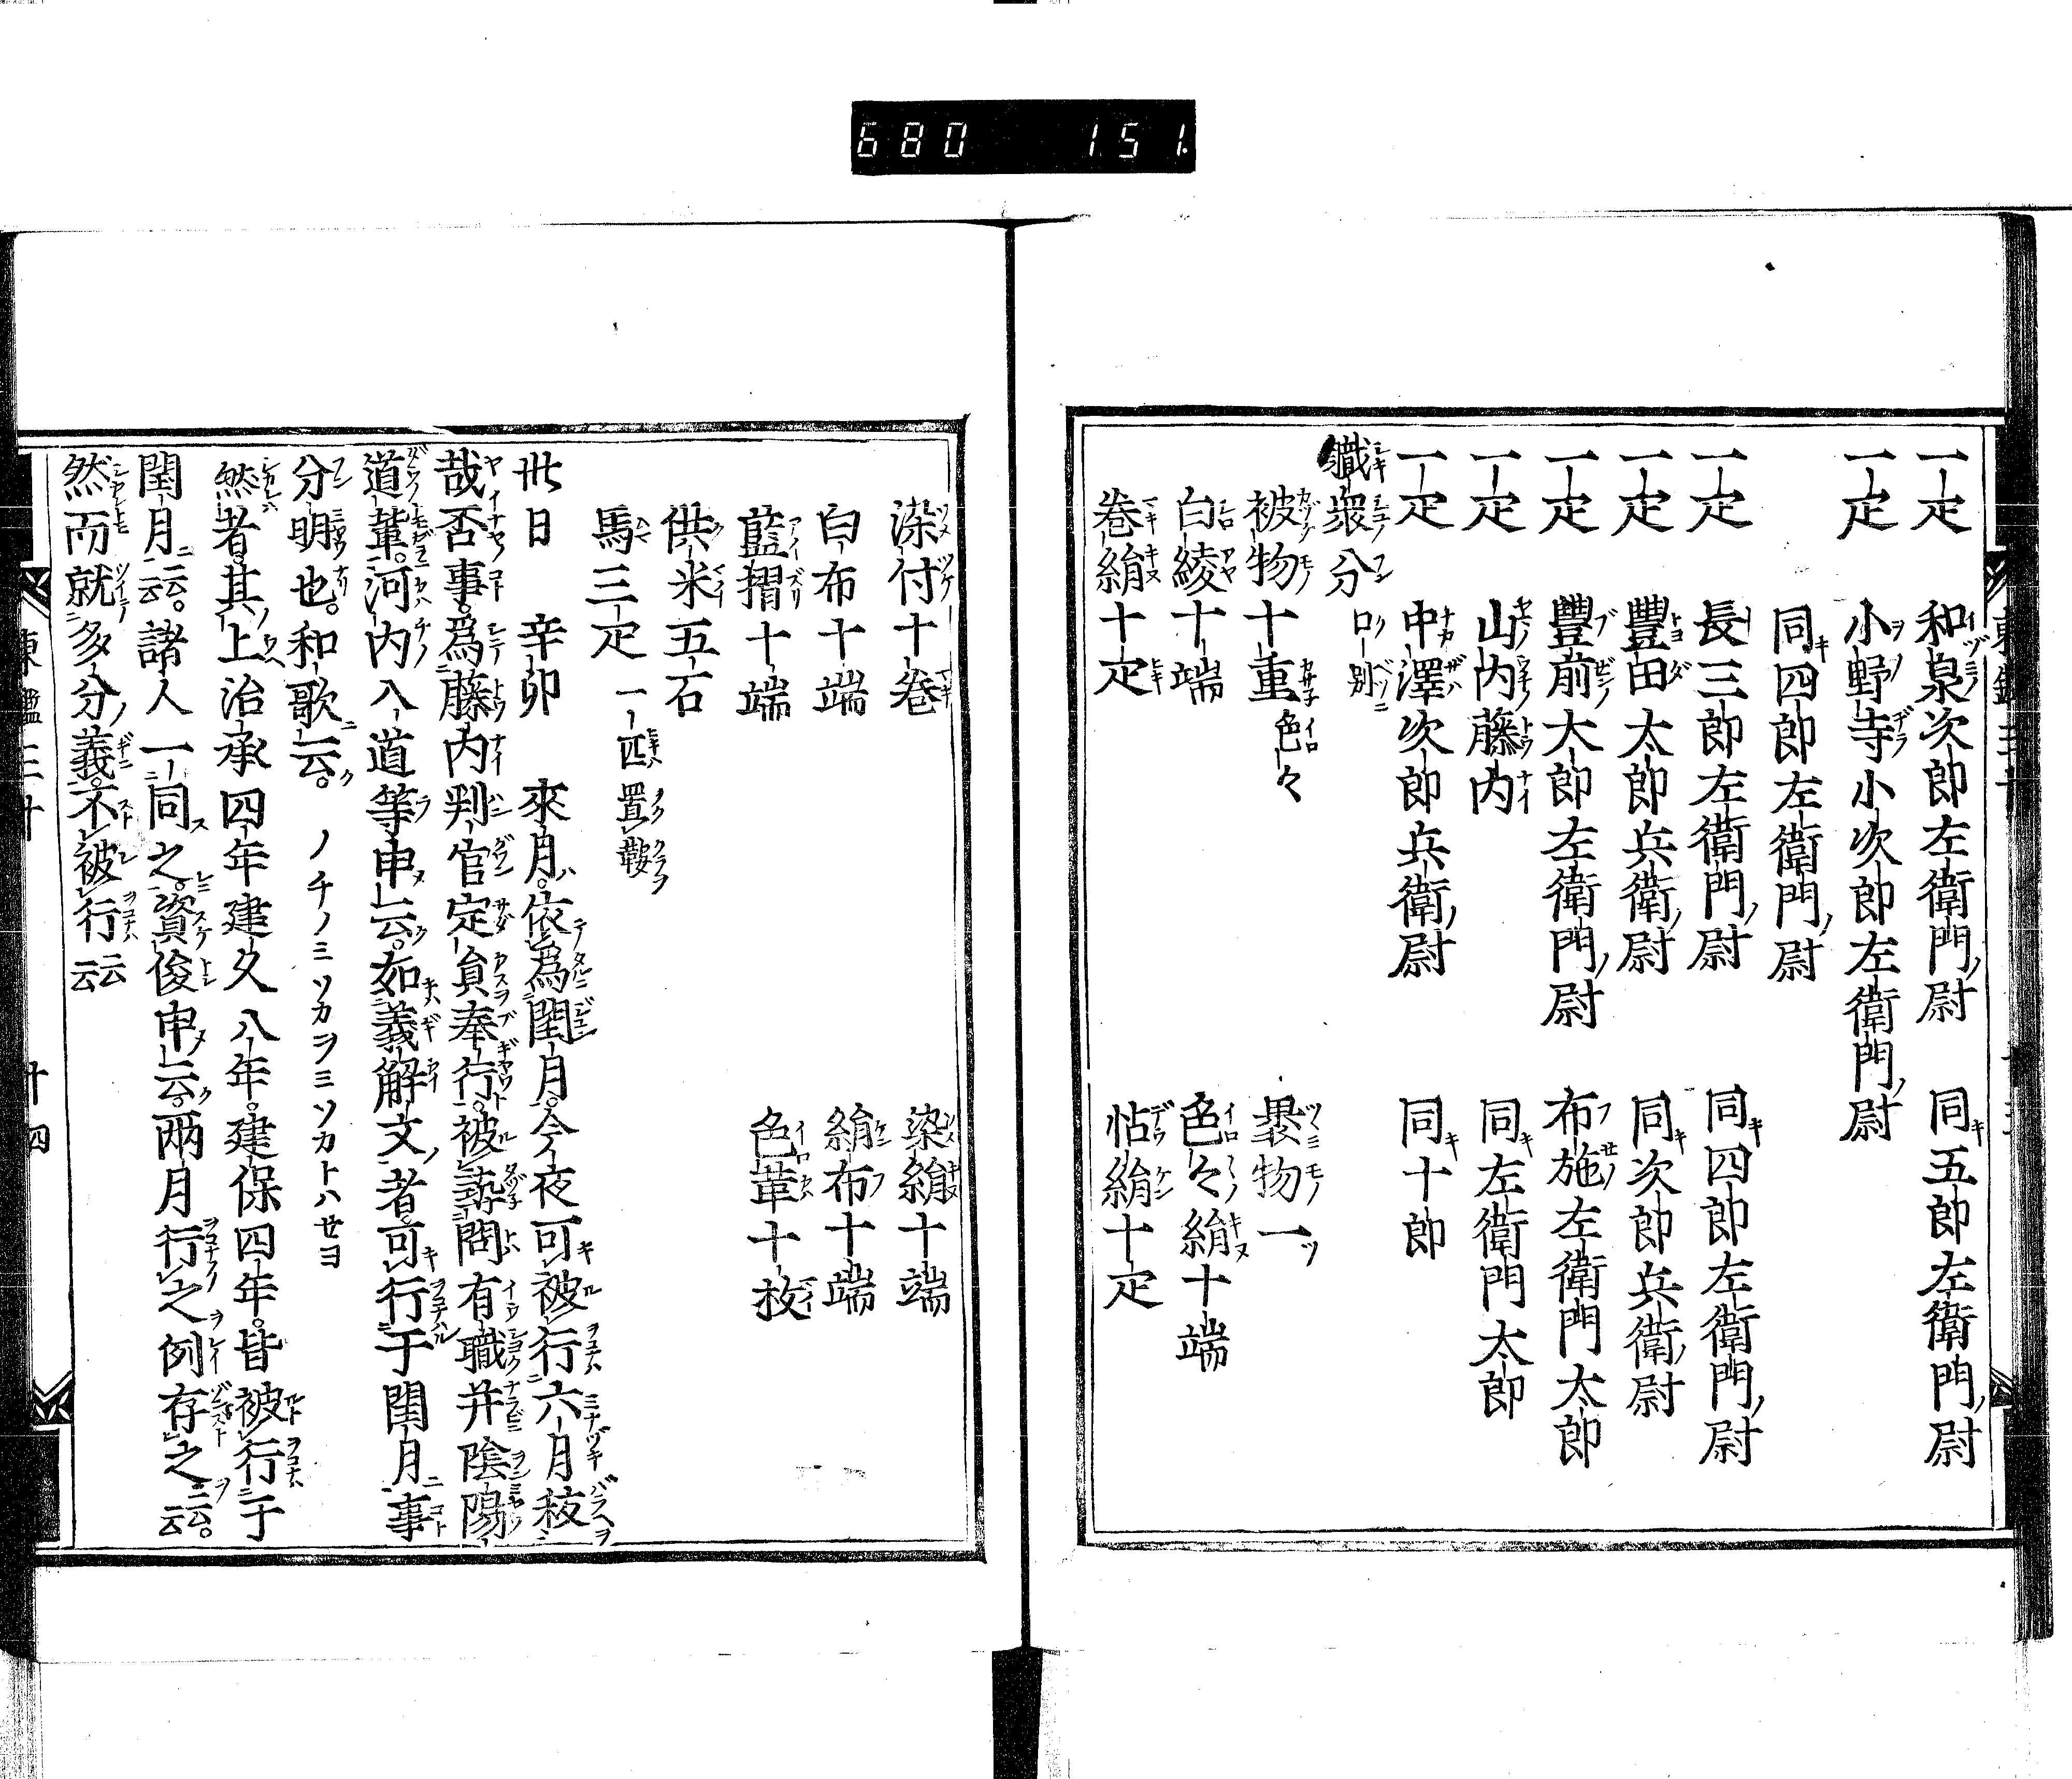 680 151
一疋 和泉次郎左衛門ノ尉 同五郎左衛門ノ尉
一疋 小野寺小次郎左衛門ノ尉
同四郎左衛門ノ尉
一疋 長三郎左衛門ノ尉 同四郎左衛門ノ尉
一疋 豐田太郎兵衛ノ尉 同次郎兵衛ノ尉
一疋 豐前大郎左衛門ノ尉 布施左衛門太郎
一疋 山内藤内 同左衛門太郎
一疋 中澤次郎兵衛ノ尉 同十郎
職衆分 口別
被物十重 色々 褁物一ツ
白綾十端 色々絹十端
卷絹十疋 帖絹十疋
染付十卷 染絹十端
白布十端 絹布十端
藍摺十端 色革十枚
供米五石
馬三疋 一匹置鞍
卅日 辛卯 來月。依爲閏月。今夜可被行六月秡
哉否事。爲藤内判官定員奉行。被尋問有職并陰陽
道輩。河内入道等申云。如義解文者。可行于閏月事
分明也。和歌云。 ノチノミソカヲミソカトハセヨ
然者。其上治承四年建久八年。建保四年。皆被行于
閏月云云。諸人一同之。資俊申云。兩月行之例存之云云。
然而就多分義。不被行云云
東鑑三十 十四